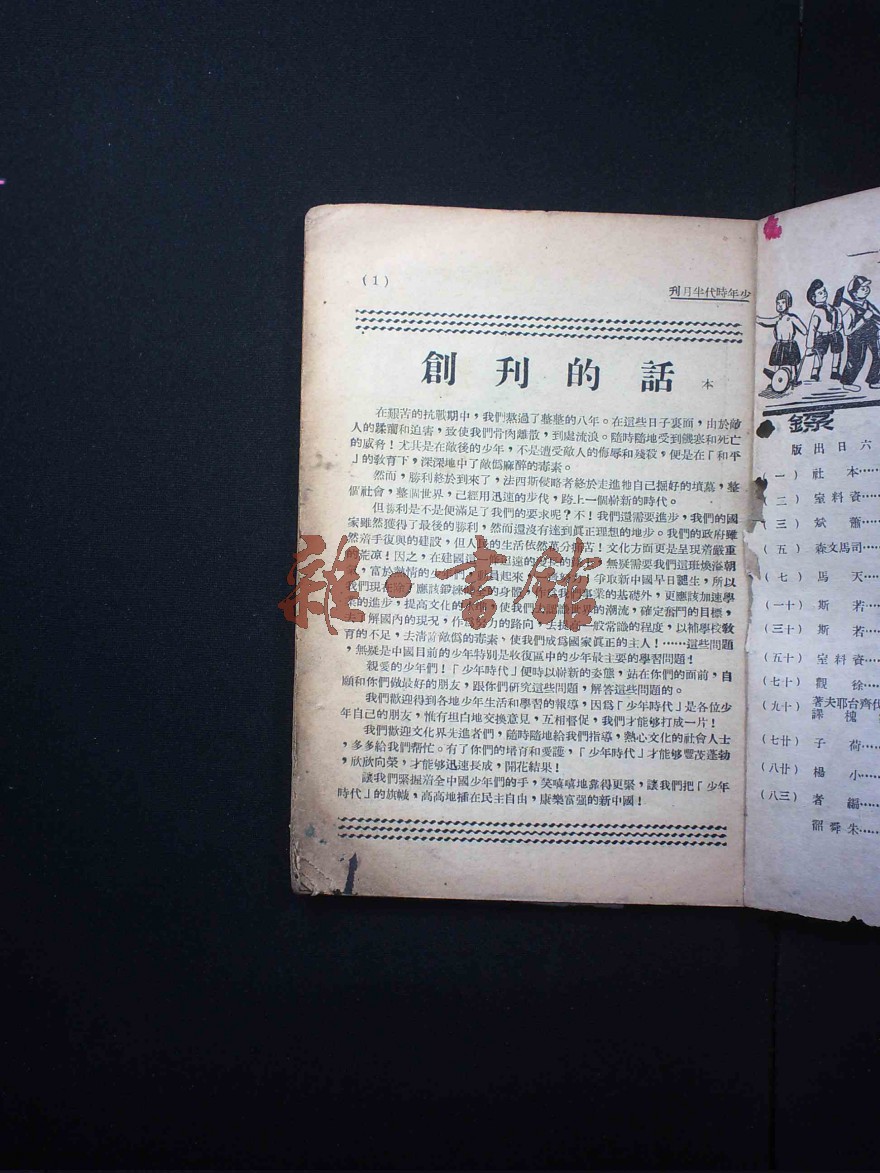 (1)
少年時代半月刊
創刊的話
本
在艱苦的抗戰期中，我們熬過了整整的八年。在這些日子裏面，由於敵
人的蹂躪和迫害，致使我們骨肉離散，到處流浪。隨時隨地受到饑寒和死亡
的威脅！尤其是在敵後的少年，不是遭受敵人的侮辱和殘殺，便是在「和平
」的敎育下，深深地中了敵僞麻醉的毒素。
然而，勝利終於到來了，法西斯侵略者終於走進牠自己掘好的墳墓，整
個社會，整個世界，已經用迅速的步伐，跨上一個嶄新的時代。
但勝利是不是便滿足了我們的要求呢？不！我們還需要進步，我們的國
家雖然獲得了最後的勝利，然而還沒有達到眞正理想的地步。我們的政府雖
然着手復興的建設，但人民的生活依然萬分痛苦！文化方面更是呈現着嚴重
的荒凉！因之，在建國這一無疑需要我們這班煥溢朝
，富於熱情的少爭取新中國早日誕生，所以
我們現在除了應該鍛鍊業的基礎外，更應該加速學
業的進步，提高文化的水準，使我們世界的潮流，確定奮鬥的目標，
去了解國內的現況，作爲努力的路向，去提高一般常識的程度，以補學校敎
育的不足，去清蕭敵僞的毒素，使我們成爲國家眞正的主人！……這些問題
，無疑是中國目前的少年特別是收復區中的少年最主要的學習問題！
親愛的少年們！「少年時代」便時以嶄新的姿態，站在你們的面前，自
願和你們做最好的朋友，跟你們研究這些問題，解答這些問題的。
我們歡迎得到各地少年生活和學習的報導，因爲「少年時代」是各位少
年自己的朋友，惟有坦白地交換意見，互相督促，我們才能够打成一片！
我們歡迎文化界先進者們，隨時隨地給我們指導，熱心文化的社會人士
，多多給我們幫忙。有了你們的培育和愛護，「少年時代」才能够豐茂蓬勃
，欣欣向榮，才能够迅速長成，開花結果！
讓我們緊握着全中國少年們的手，笑嘻嘻地靠得更緊，讓我們把「少年
時代」的旗幟，高高地插在民主自由，康樂富强的新中國！
六日出版
(一) 本社
(二) 資料室
(三) 蕭斌
(五) 司馬文森
(七) 天馬
(十一) 若斯
(十三) 若斯
(十五) 資料室
(十七) 徐觀
(十九) 代齊台耶夫著
槐譯
(廿七) 荷子
(廿八) 小楊
(三八) 編者
朱舜韶
雜·書館